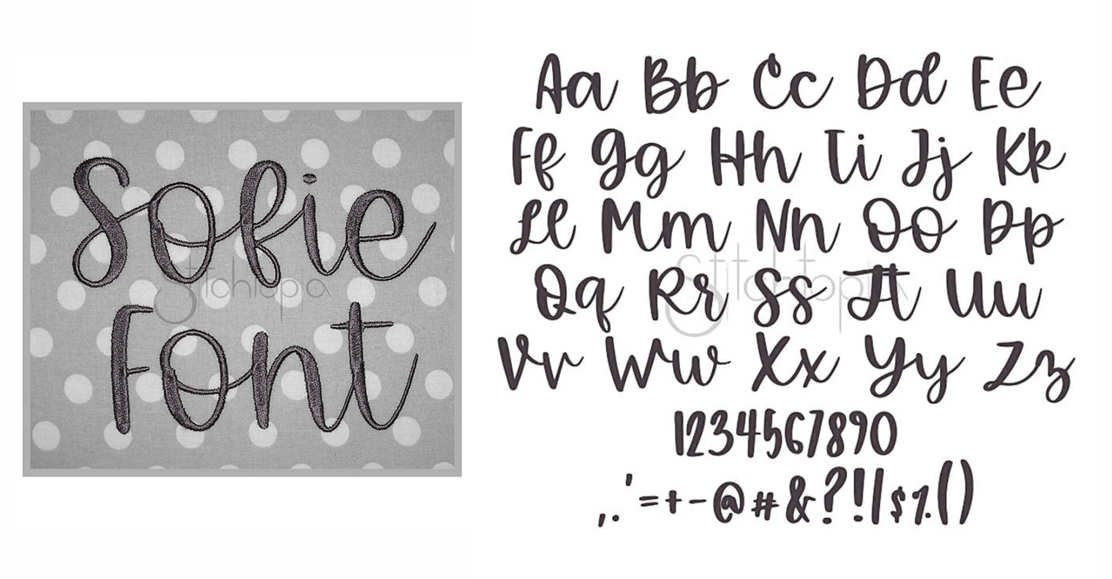 Sofie
Font
Stitchtopia
Aa Bb Cc Dd Ee
Ff Gg Hh Ii Jj Kk
Ll Mm Nn Oo Pp
Qq Rr Ss Tt Uu
Stitchtopia
Vv Ww Xx Yy Zz
1234567890
,.'=+-@#&?!|$%()